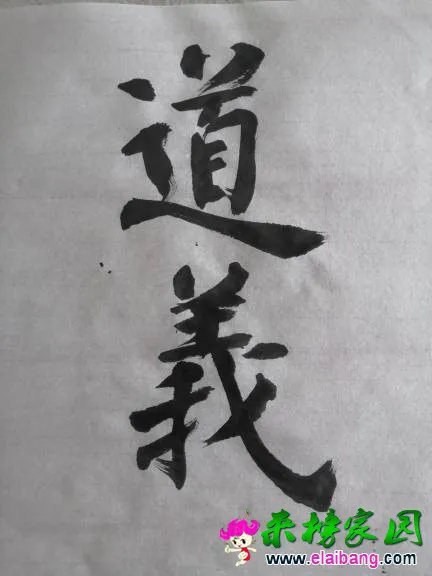 道
義
来榜家园
www.elaibang.com